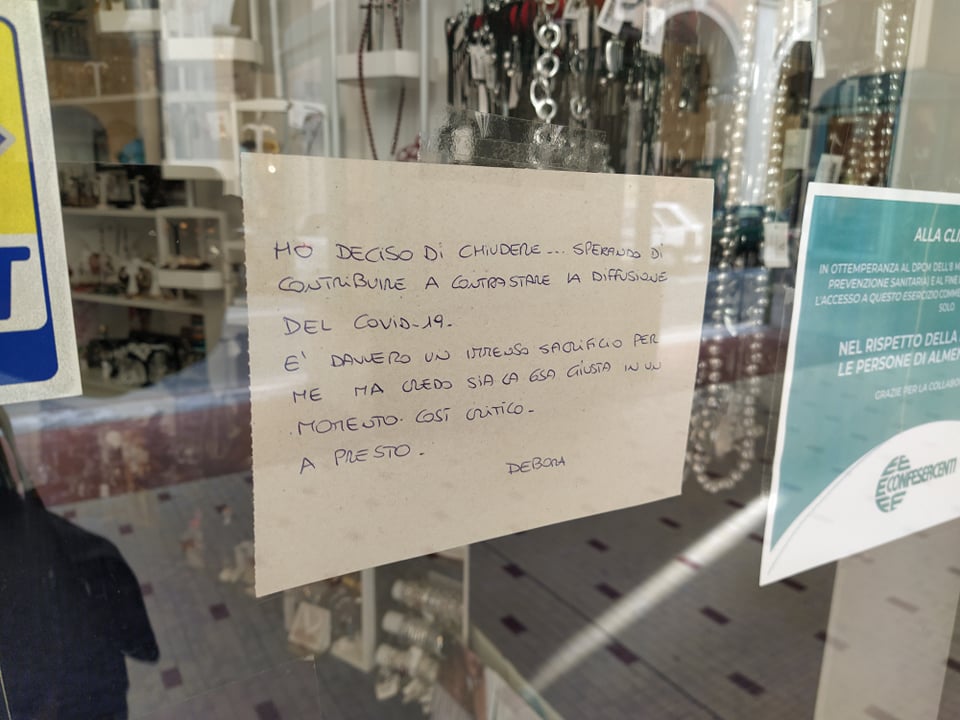 HO DECISO DI CHIUDERE... SPERANDO DI
CONTRIBUIRE A CONTRASTARE LA DIFFUSIONE
DEL COVID-19.
E' DAVVERO UN IMMENSO SACRIFICIO PER
ME MA CREDO SIA LA COSA GIUSTA IN UN
MOMENTO COSÌ CRITICO.
A PRESTO.
DEBORA
ALLA
IN OTTEMPERANZA AL DPCM DELL'8
PREVENZIONE SANITARIA) E AL FINE
L'ACCESSO A QUESTO ESERCIZIO
SOLO
NEL RISPETTO DELLA
LE PERSONE DI ALMEN
GRAZIE PER LA
CONFESERCENTI